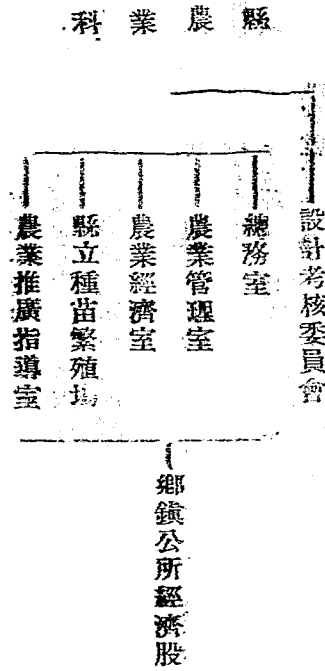 縣農業科
設計考核委員會
總務室
農業管理室
農業經濟室
縣立種苗繁殖場
農業推廣指導室
鄉鎮公所經濟股